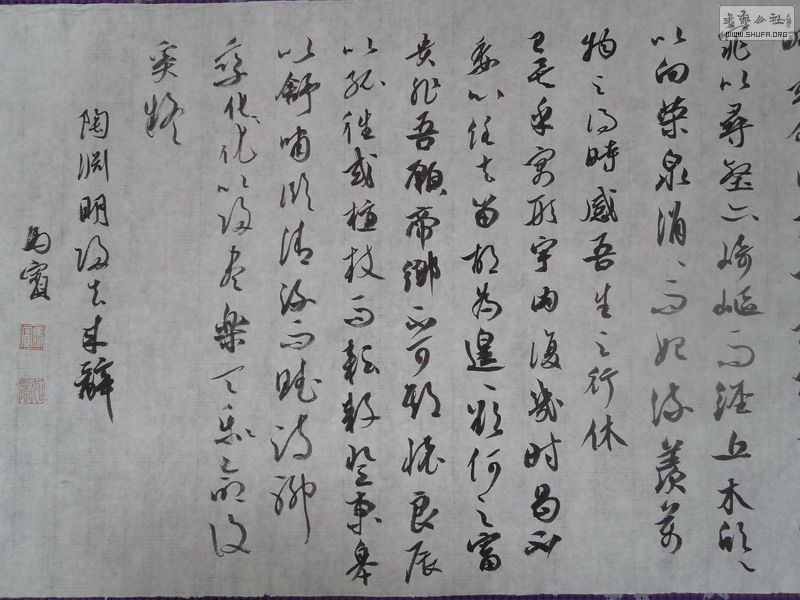 窕以尋壑亦崎嶇而經丘木欣、
以向榮泉涓、而始流羨萬
物之得時感吾生之行休
已矣乎寓形宇內復幾時曷不
委心任去留胡為遑、欲何之富
貴非吾願帝鄉不可期懷良辰
以孤往或植杖而耘耔登東皋
以舒嘯臨清流而賦詩聊
乘化以歸盡樂夫天命復
奚疑
陶淵明歸去來辭
書藝公社
WWW.SHUFA.ORG